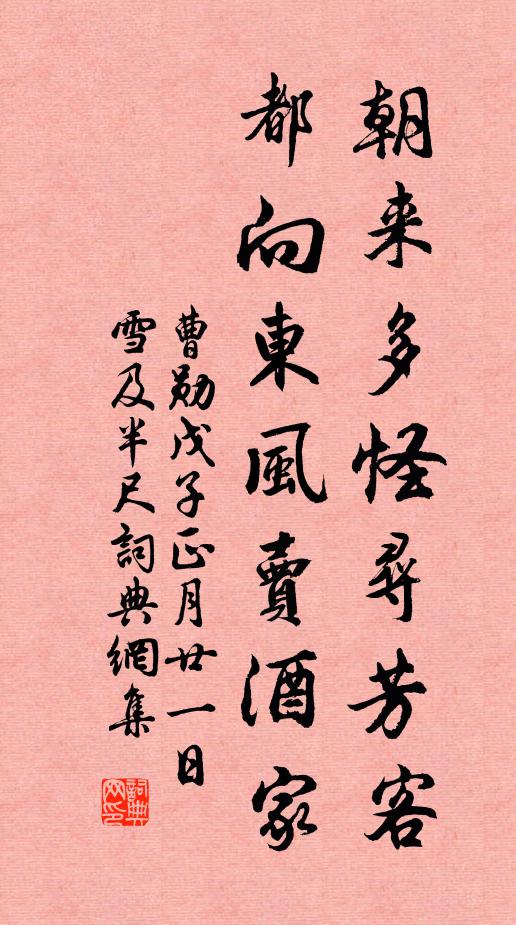 朝来多怪尋芳客
都向東風賣酒家
曹勛戊子正月廿一日
雪及半尺詞典網集
詞典
网印